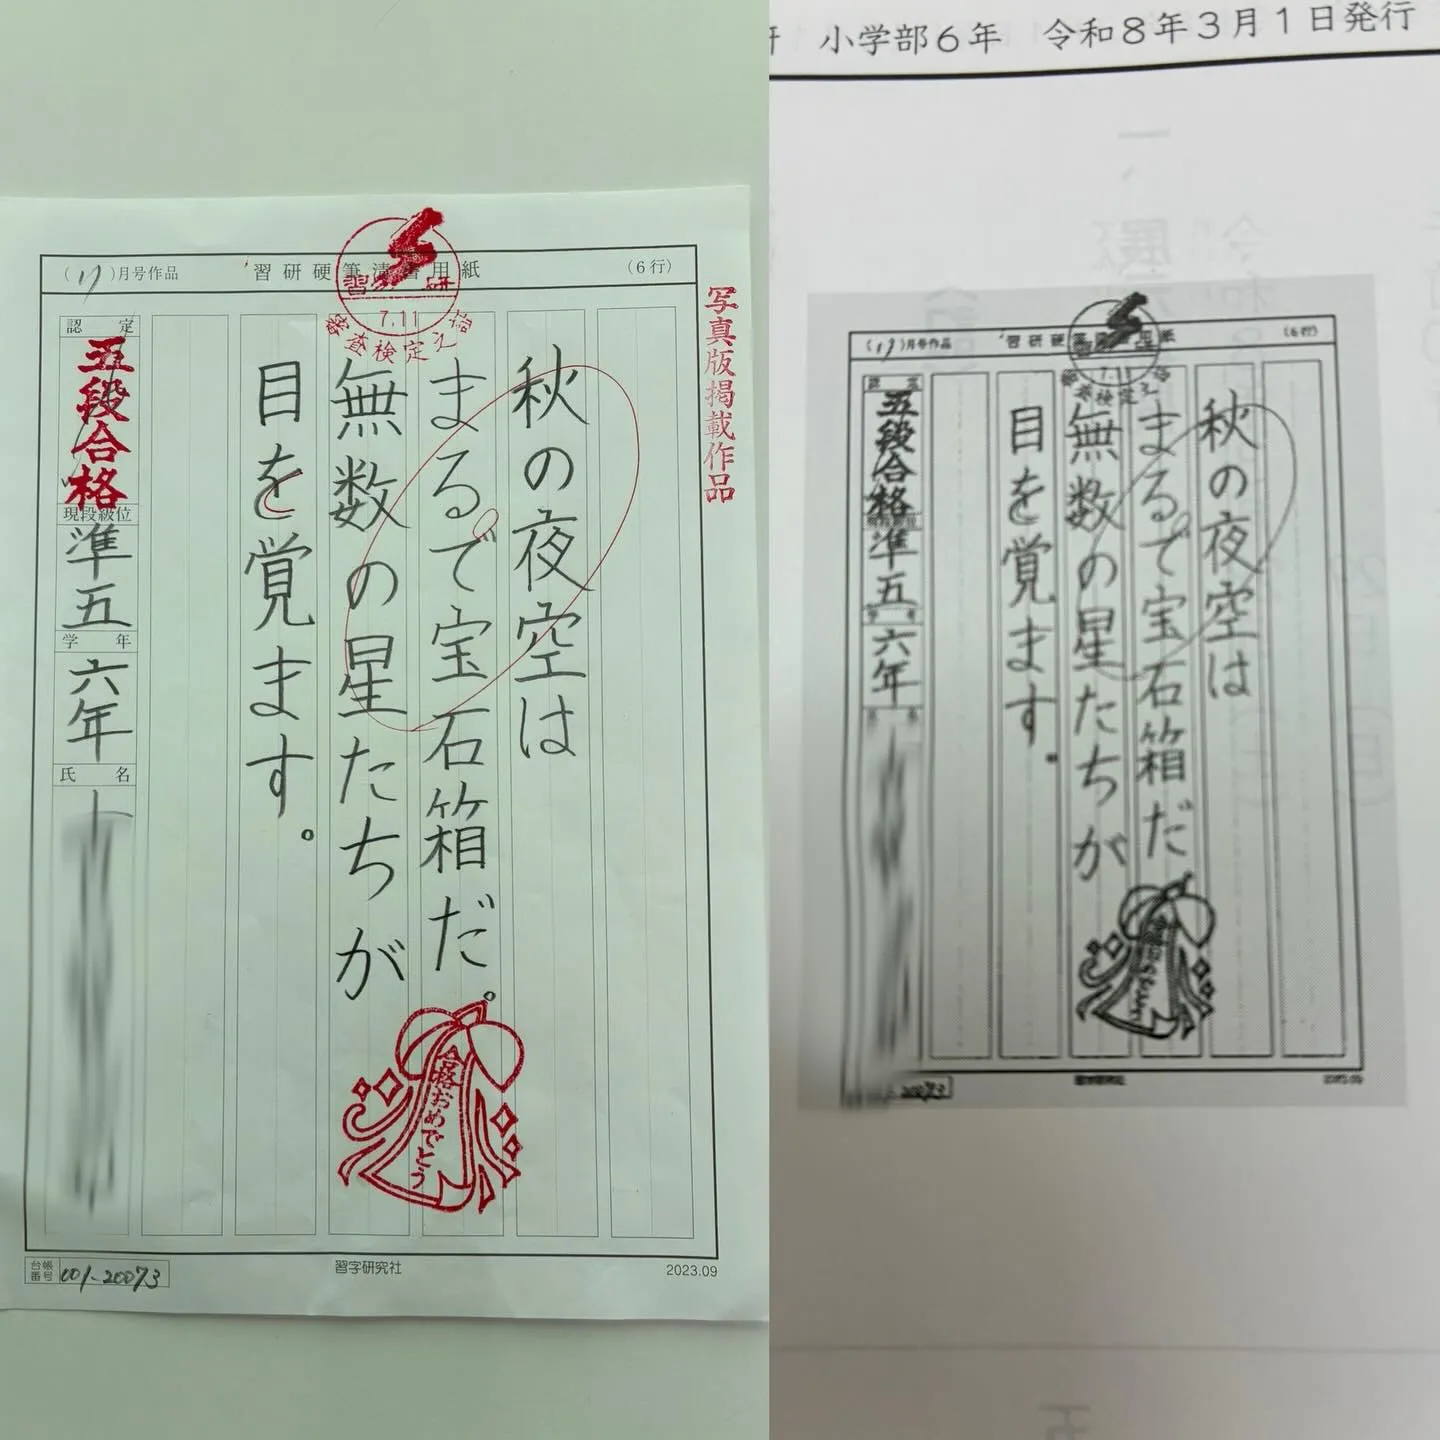 (11)月号作品
習研硬筆清書用紙
(6行)
習研
7.11
審査検定之印
写真版掲載作品
秋の夜空は
まるで宝石箱だ。
無数の星たちが
目を覚ます。
認定
五段合格
現段級位
準五
学年
六年
氏名
合格おめでとう
台帳番号
001-20073
習字研究社
2023.09
小学部6年 令和8年3月1日発行
(11)月号作品
習研硬筆清書用紙
(6行)
秋の夜空は
まるで宝石箱だ
無数の星たちが
目を覚ます。
五段合格
準五
六年
合格おめでとう
20073
習字研究社
2023.09